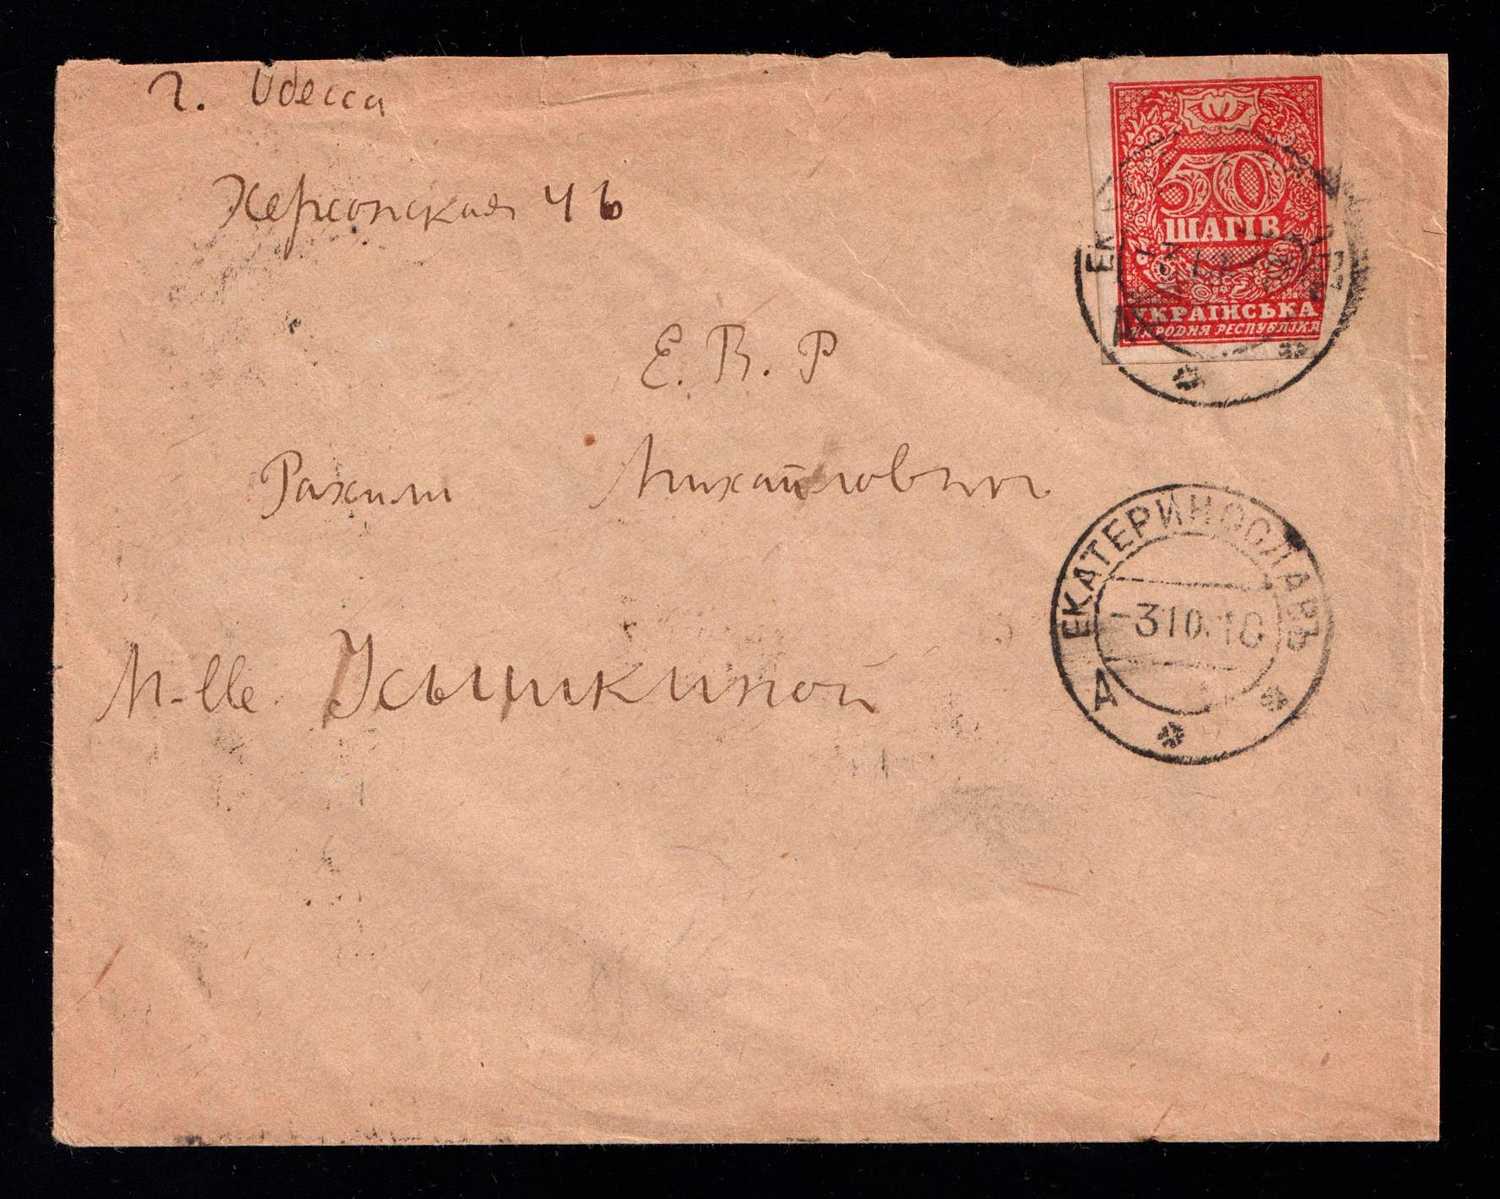 г. Одесса
Херсонская 46
Е. В. Р
Рахили Михайловны
M-lle. Усышкиной
50
ШАГІВ
УКРАЇНСЬКА
НАРОДНЯ РЕСПУБЛІКА
ЕКАТЕРИНОСЛАВЪ
-3 10. 18
А